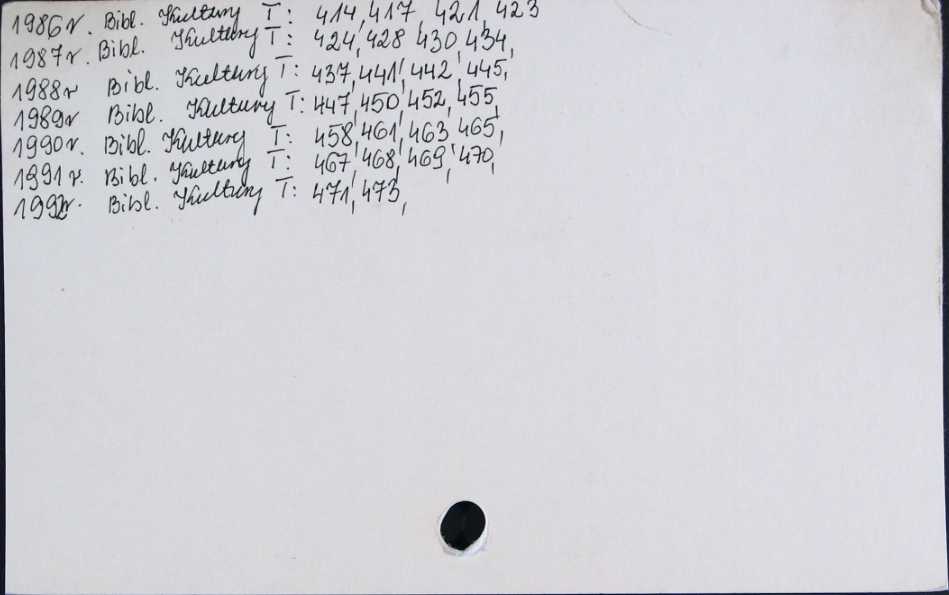 1986r. Bibl. Kultury T: 414, 417, 421, 423
1987r. Bibl. Kultury T: 424, 428, 430, 434,
1988r Bibl. Kultury T: 437, 441, 442, 445,
1989r Bibl. Kultury T: 447, 450, 452, 455,
1990r. Bibl. Kultury T: 458, 461, 463, 465,
1991r. Bibl. Kultury T: 467, 468, 469, 470,
1992r. Bibl. Kultury T: 471, 473,